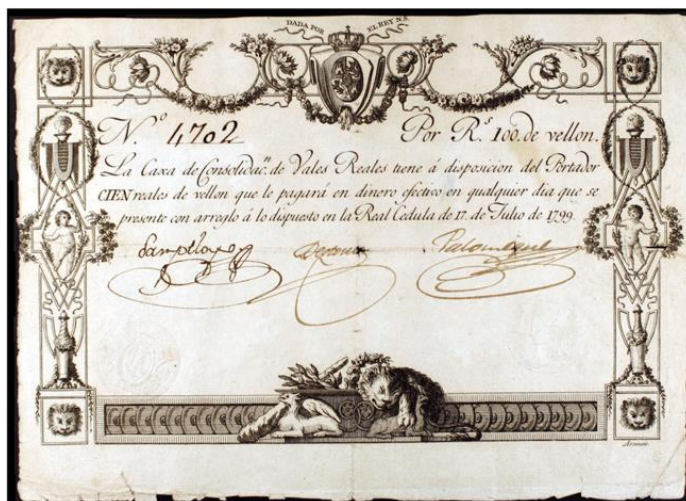 DADA POR EL REY N.S.
N.º 4702 Por R.s 100. de vellon.
La Caxa de Consolidac.n de Vales Reales tiene á disposicion del Portador
CIEN reales de vellon que le pagará en dinero efectivo en qualquier dia que se
presente con arreglo á lo dispuesto en la Real Cedula de 17. de Julio de 1799.